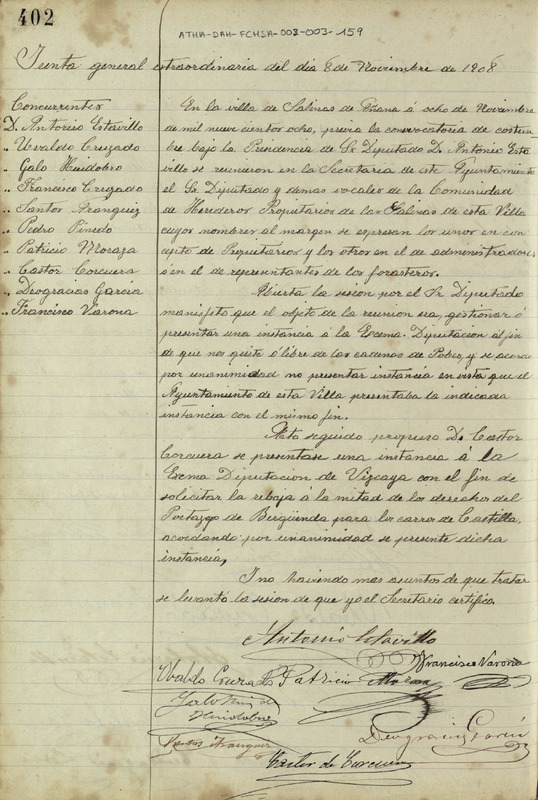 402
ATHA-DAH-FCMSA-003-003-159
Junta general estraordinaria del dia 8 de Noviembre de 1908
Concurrentes
D. Antonio Estavillo
" Uvaldo Cruzado
" Galo Huidobro
" Francisco Cruzado
" Santos Aranguiz
" Pedro Pinedo
" Patricio Moraza
" Castor Corcuera
" Deogracias Garcia
" Francisco Varona
En la villa de Salinas de Añana á ocho de Noviembre
de mil nueve cientos ocho, previa la convocatoria de costum
bre bajo la Presidencia de Sr Diputado D. Antonio Esta
villo se reunieron en la Secretaria de este Ayuntamiento
el Sr Diputado y demas vocales de la Comunidad
de Herederos Propietarios de las Salinas de esta Villa
cuyos nombres al margen se espresan los unos en con
cepto de Propietarios y los otros en el de administradores
ó en el de representantes de los forasteros.
Abierta la sesion por el Sr Diputado
manifestó que el objeto de la reunion era, gestionar ó
presentar una instancia á la Excma. Diputacion al fin
de que nos quite ó libre de las cadenas de Pobes, y se acordó
por unanimidad no presentar instancia en vista que el
Ayuntamiento de esta Villa presentaba la indicada
instancia con el mismo fin.
Acto seguido propuso D. Castor
Corcuera se presentase una instancia á la
Exma Diputacion de Vizcaya con el fin de
solicitar la rebaja á la mitad de los derechos del
Portazgo de Bergüenda para los carros de Castilla,
acordando por unanimidad se presente dicha
instancia,
I no haviendo mas asuntos de que tratar
se levantó la sesion de que yo el Secretario certifico.
Antonio Estavillo
Francisco Varona
Ubaldo Cruzado Patricio Moraza
Galo Ruiz de
Huidobro
Deogracias Garcia
Santos Aranguiz
Castor de Corcuera